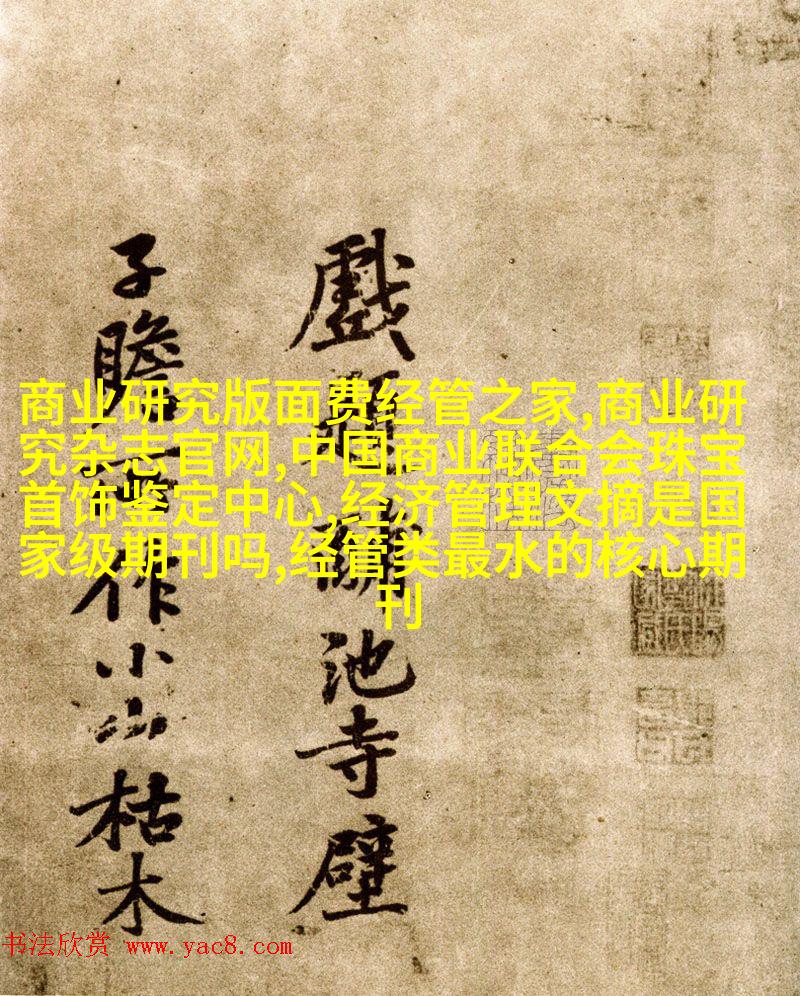 戲
池寺壁
子瞻
作小山枯木
商业研究版面费经管之家,商业研
究杂志官网,中国商业联合会珠宝
首饰鉴定中心,经济管理文摘是国
家级期刊吗,经管类最水的核心期
刊
书法欣赏 www.yac8.com